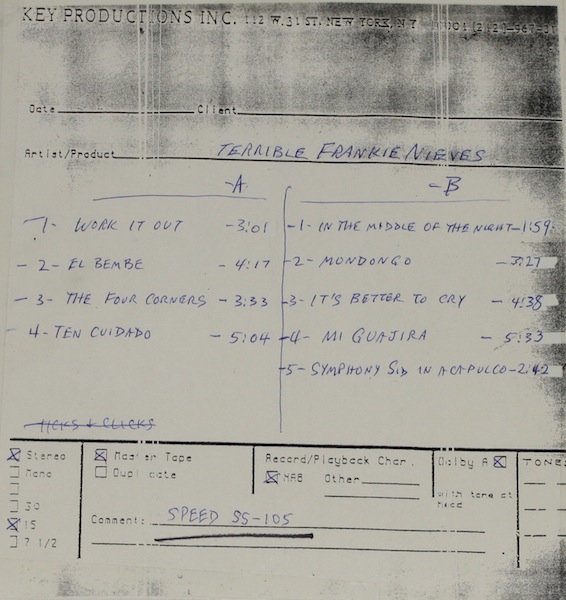 KEY PRODUCTIONS INC. 112 W. 31 ST. NEW YORK, N Y
Date Client
Artist/Product TERRIBLE FRANKIE NIEVES
-A
1- WORK IT OUT -3:01
- 2- EL BEMBE - 4:17
- 3- THE FOUR CORNERS - 3:33
- 4- TEN CUIDADO - 5:04
-B
-1- IN THE MIDDLE OF THE NIGHT-1:59
-2- MONDONGO -3:27
-3- IT'S BETTER TO CRY - 4:38
-4- MI GUAJIRA - 5:33
-5- SYMPHONY SID IN ACAPULCO-2:42
TICKS & CLICKS
Stereo
Mono
30
15
7 1/2
Master Tape
Duplicate
Comment: SPEED SS-105
Record/Playback Char.
NAB Other
Dolby A
with tone at
head
TONE: